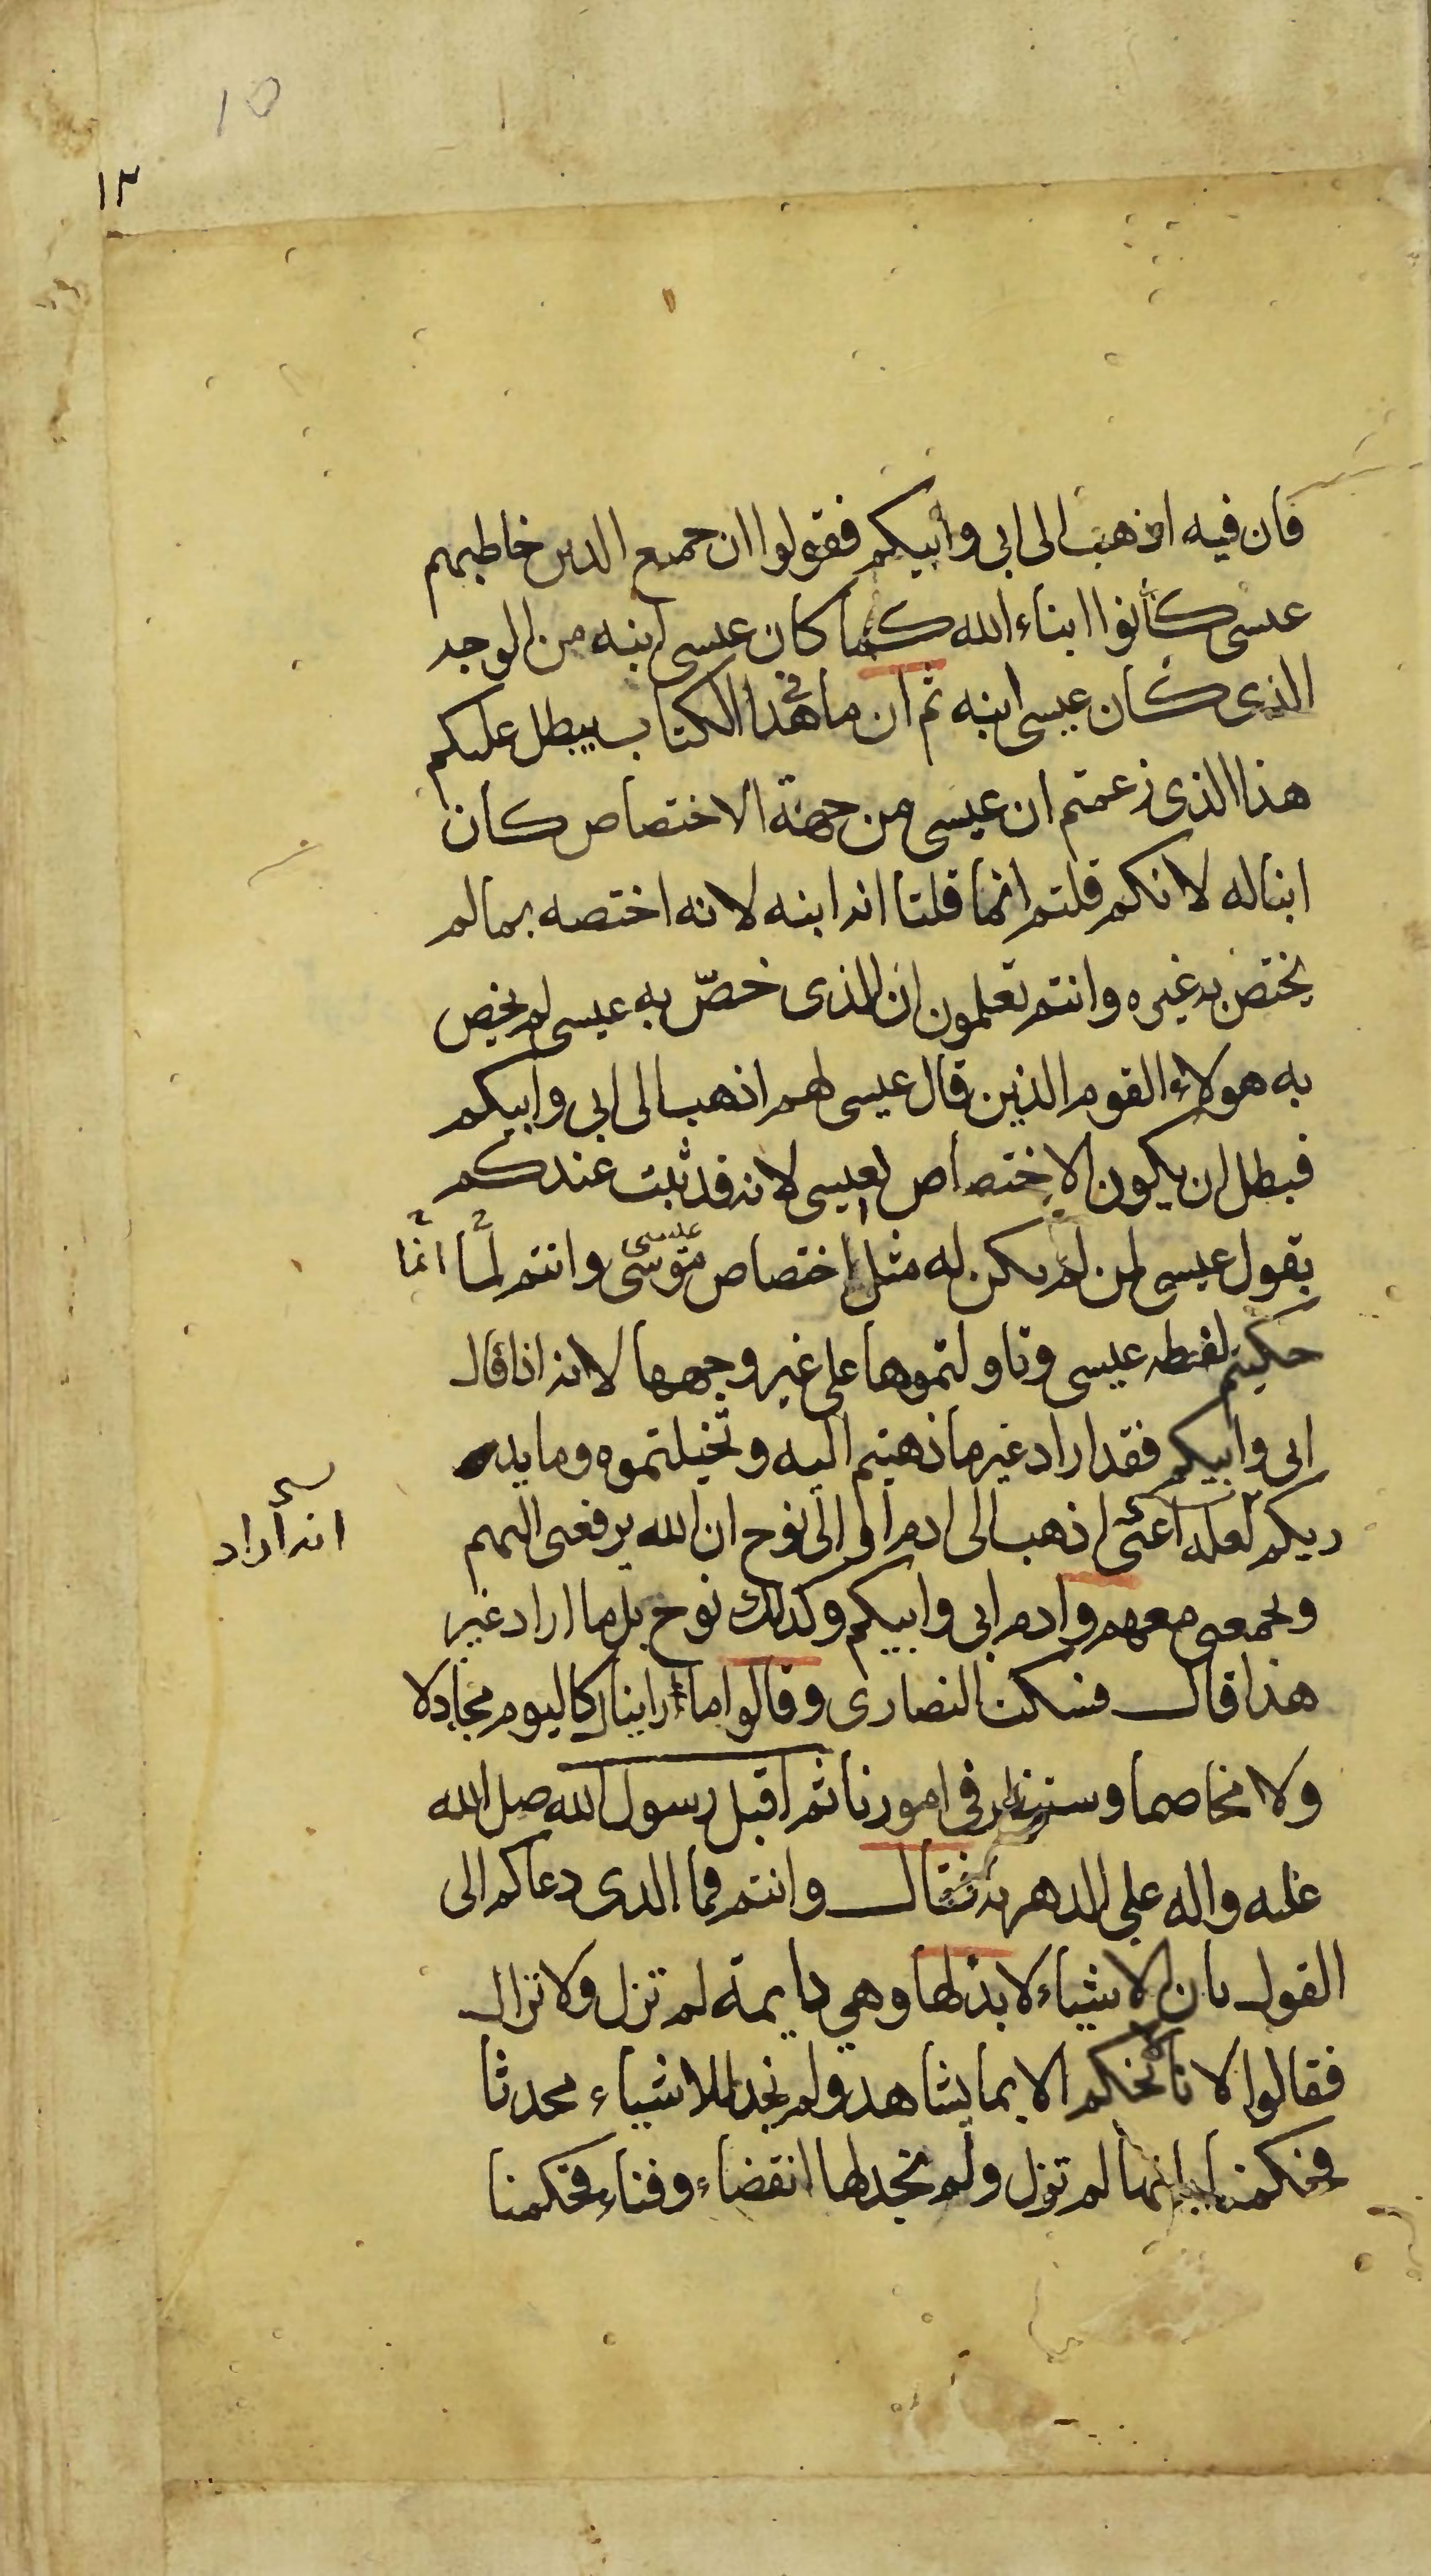 10
١٣
فان فيه اذهب الى ابى وابيكم فقولوا ان جميع الذين خاطبهم
عيسى كانوا ابناء الله كما كان عيسى ابنه من الوجه
الذى كان عيسى ابنه ثم ان ما فى هذا الكتاب يبطل عليكم
هذا الذى زعمتم ان عيسى من جهة الاختصاص كان
ابنا له لانكم قلتم انما قلنا انه ابنه لانه اختصه بما لم
يختص به غيره وانتم تعلمون ان الذى خصّ به عيسى لم يخص
به هولاء القوم الذين قال عيسى لهم اذهب الى ابى وابيكم
فبطل ان يكون الاختصاص لعيسى لانه قد ثبت عندكم
بقول عيسى لمن لم يكن له مثل اختصاص موسى عيسى وانتم لما انما
حكيتم لفظه عيسى وتاولتموها على غير وجهها لانه اذا قال
ابى وابيكم فقد اراد غير ما ذهبتم اليه وتخيلتموه وما يد
ريكم لعله اعنى اذهب الى ادم او الى نوح ان الله يرفعنى اليهم
انه أراد
ويجمعنى معهم وادم ابى وابيكم وكذلك نوح بل ما اراد غير
هذا قال فسكت النصارى وقالوا ما راينا كاليوم مجادلا
ولا مخاصما وسننظر فى امورنا ثم اقبل رسول الله صلى الله
عليه واله على الدهريه فقال وانتم فما الذى دعاكم الى
القول بان الاشياء لا بد لها وهي دايمة لم تزل ولا تزال
فقالوا لانا لا نحكم الا بما يشاهد ولم نجد للاشياء محدثا
فحكمنا بانها لم تزل ولم نجد لها انقضاء وفناء فحكمنا